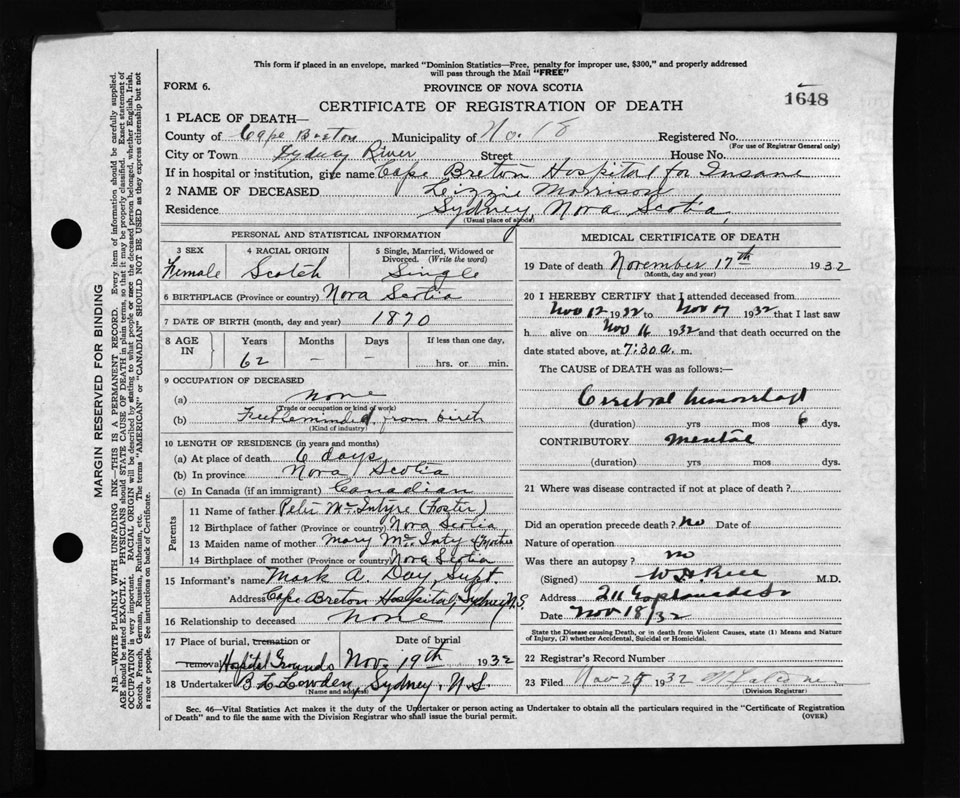 This form if placed in an envelope, marked "Dominion Statistics—Free, penalty for improper use, $300," and properly addressed
will pass through the Mail "FREE"
FORM 6.
PROVINCE OF NOVA SCOTIA
1648
CERTIFICATE OF REGISTRATION OF DEATH
1 PLACE OF DEATH—
County of Cape Breton Municipality of No. 18 Registered No.
(For use of Registrar General only)
City or Town Sydney River Street House No.
If in hospital or institution, give name Cape Breton Hospital for Insane
2 NAME OF DECEASED Lizzie Morrison
Residence Sydney, Nova Scotia
(Usual place of abode)
PERSONAL AND STATISTICAL INFORMATION
3 SEX Female
4 RACIAL ORIGIN Scotch
5 Single, Married, Widowed or Divorced. (Write the word) Single
6 BIRTHPLACE (Province or country) Nova Scotia
7 DATE OF BIRTH (month, day and year) 1870
8 AGE IN
Years Months Days If less than one day,
62 – – hrs. or min.
9 OCCUPATION OF DECEASED
(a) none
(Trade or occupation or kind of work)
(b) from birth
(Kind of industry)
10 LENGTH OF RESIDENCE (in years and months)
(a) At place of death 6 days
(b) In province Nova Scotia
(c) In Canada (if an immigrant) Canadian
Parents
11 Name of father Peter McIntyre (Foster)
12 Birthplace of father (Province or country) Nova Scotia
13 Maiden name of mother Mary McInty
14 Birthplace of mother (Province or country) Nova Scotia
15 Informant's name Mark A. Day, Supt.
Address Cape Breton Hospital, Sydney N.S.
16 Relationship to deceased none
17 Place of burial, cremation or removal Hospital Grounds
Date of burial Nov. 19th 1932
18 Undertaker Sydney, N.S.
(Name and address)
MEDICAL CERTIFICATE OF DEATH
19 Date of death November 17th 1932
(Month, day and year)
20 I HEREBY CERTIFY that I attended deceased from
Nov 12 1932 to Nov 17 1932 that I last saw
h alive on Nov 16 1932 and that death occurred on
date stated above, at 7:30 a. m.
The CAUSE of DEATH was as follows:—
Cerebral hemorrhage
(duration) yrs mos 6 dys.
CONTRIBUTORY mental
(duration) yrs mos dys.
21 Where was disease contracted if not at place of death?
Did an operation precede death? no Date of
Nature of operation
Was there an autopsy? no
(Signed) M.D.
Address 211 Esplanade
Date Nov 18/32
State the Disease causing Death, or in death from Violent Causes, state (1) Means and Nature
of Injury, (2) whether Accidental, Suicidal or Homicidal.
22 Registrar's Record Number
23 Filed Nov 1932
(Division Registrar)
Sec. 46—Vital Statistics Act makes it the duty of the Undertaker or person acting as Undertaker to obtain all the particulars required in the "Certificate of Registration
of Death" and to file the same with the Division Registrar who shall issue the burial permit.
(OVER)
MARGIN RESERVED FOR BINDING
N.B.—WRITE PLAINLY WITH UNFADING INK—THIS IS A PERMANENT RECORD. Every item of information should be carefully supplied.
AGE should be stated EXACTLY. PHYSICIANS should STATE CAUSE OF DEATH in plain terms, so that it may be properly classified. Exact statement of
OCCUPATION is very important. RACIAL ORIGIN will be described by stating to what people or race the deceased person belonged, whether English, Irish,
Scotch, French, German, Russian, Ruthenian, etc. The terms "AMERICAN" or "CANADIAN" SHOULD NOT BE USED as they express citizenship but not
a race or people. See instructions on back of Certificate.